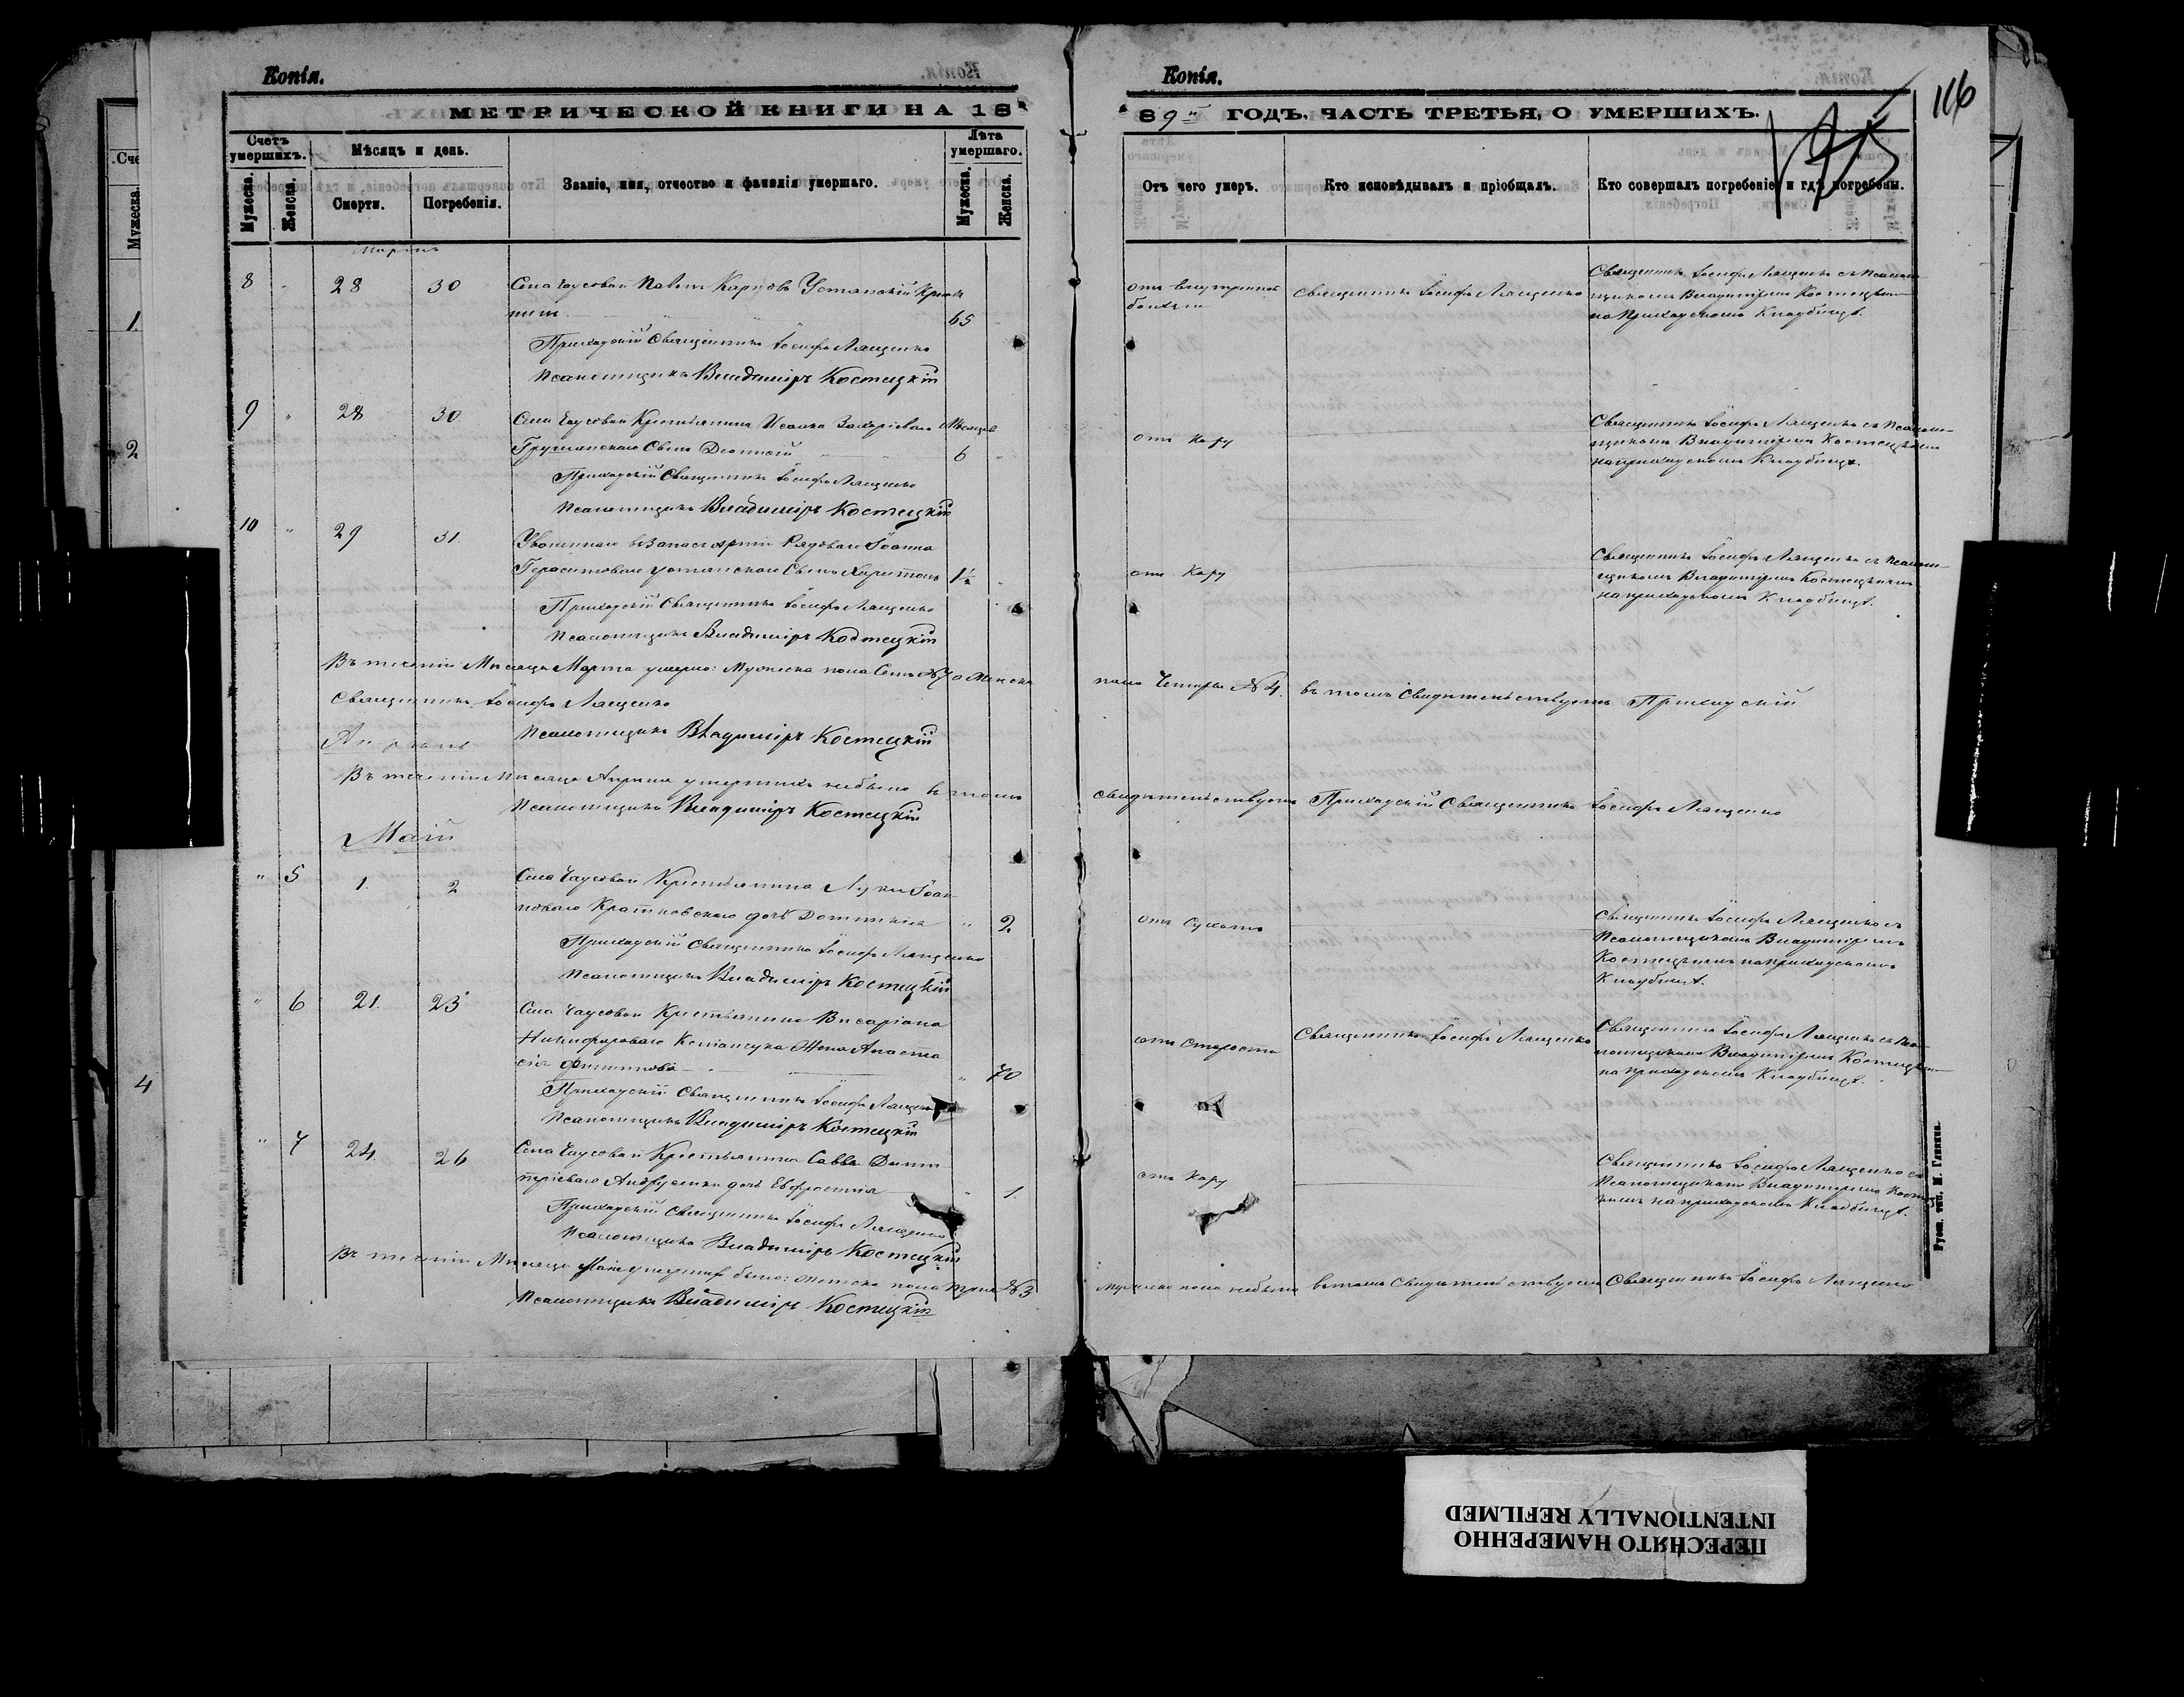 Копія.
МЕТРИЧЕСКОЙ КНИГИ НА 18
Счетъ умершихъ.
Мѣсяцъ и день.
Званіе, имя, отчество и фамилія умершаго.
Лѣта умершаго.
Мужеска.
Женска.
Смерти.
Погребенія.
Мужеска.
Женска.
Мартъ
8 28 30 Села Чаусовки Павелъ Карповъ
65
Приходскій Священникъ Іосифъ Лященко
Псаломщикъ Владиміръ Костецкій
9 28 30 Села Чаусовки Крестьянина Исаака Захаріева Мѣсяцев
Сынъ Діонисій 6
Приходскій Священникъ Іосифъ Лященко
Псаломщикъ Владиміръ Костецкій
10 29 31 Рядоваго Іоанна
Герасимоваго Сынъ Харитонъ 1½
Приходскій Священникъ Іосифъ Лященко
Псаломщикъ Владиміръ Костецкій
Въ теченіи Мѣсяца Марта умерло: Мужеска пола Семь №7 а Женска
Священникъ Іосифъ Лященко
Апрѣль
Псаломщикъ Владиміръ Костецкій
Въ теченіи Мѣсяца Апрѣля умершихъ небыло въ томъ
Псаломщикъ Владиміръ Костецкій
Маій
" 5 1. 2 Села Чаусовки Крестьянина Луки Іоан-
новаго дочь Домникія " 2
Приходскій Священникъ Іосифъ Лященко
Псаломщикъ Владиміръ Костецкій
" 6 21. 23 Села Чаусовки Крестьянина Висаріона
Никифороваго Жена Анаста
сія " 70
Приходскій Священникъ Іосифъ Лященко
Псаломщикъ Владиміръ Костецкій
" 7 24. 26 Села Чаусовки Крестьянина Саввы Дими
тріеваго дочь Евфросинія " 1.
Приходскій Священникъ Іосифъ Лященко
Псаломщикъ Владиміръ Костецкій
Въ теченіи Мѣсяца Маія умершихъ было: Женска пола три №3
Псаломщикъ Владиміръ Костецкій
Копія.
116
89 ГОДЪ, ЧАСТЬ ТРЕТЬЯ, О УМЕРШИХЪ.
Отъ чего умеръ.
Кто исповѣдывалъ и пріобщалъ.
Кто совершалъ погребеніе и гдѣ погребены.
отъ внутренней Священникъ Іосифъ Лященко Священникъ Іосифъ Лященко съ Псалом-
болѣзни щикомъ Владиміромъ Костецкимъ
на Приходскомъ Кладбищѣ.
отъ Кору Священникъ Іосифъ Лященко съ Псалом-
щикомъ Владиміромъ Костецкимъ
на приходскомъ Кладбищѣ.
отъ Кору Священникъ Іосифъ Лященко съ Псалом-
щикомъ Владиміромъ Костецкимъ
на приходскомъ Кладбищѣ.
пола Четыре №4. въ томъ Свидѣтельствуетъ Приходскій
свидѣтельствуетъ Приходскій Священникъ Іосифъ Лященко
отъ Сухотъ Священникъ Іосифъ Лященко съ
Псаломщикомъ Владиміромъ
Костецкимъ на приходскомъ
Кладбищѣ.
отъ Старости Священникъ Іосифъ Лященко Священникъ Іосифъ Лященко съ Пса-
ломщикомъ Владиміромъ Костецким
на приходскомъ Кладбищѣ.
отъ Кору Священникъ Іосифъ Лященко съ
Псаломщикомъ Владиміромъ Костец
кимъ на приходскомъ Кладбищѣ.
Мужеска пола небыло въ томъ Свидѣтельствуетъ Священникъ Іосифъ Лященко
Сче
Мужеска.
1.
2
4
ПЕРЕСНЯТО НАМЕРЕННО
INTENTIONALLY REFILMED